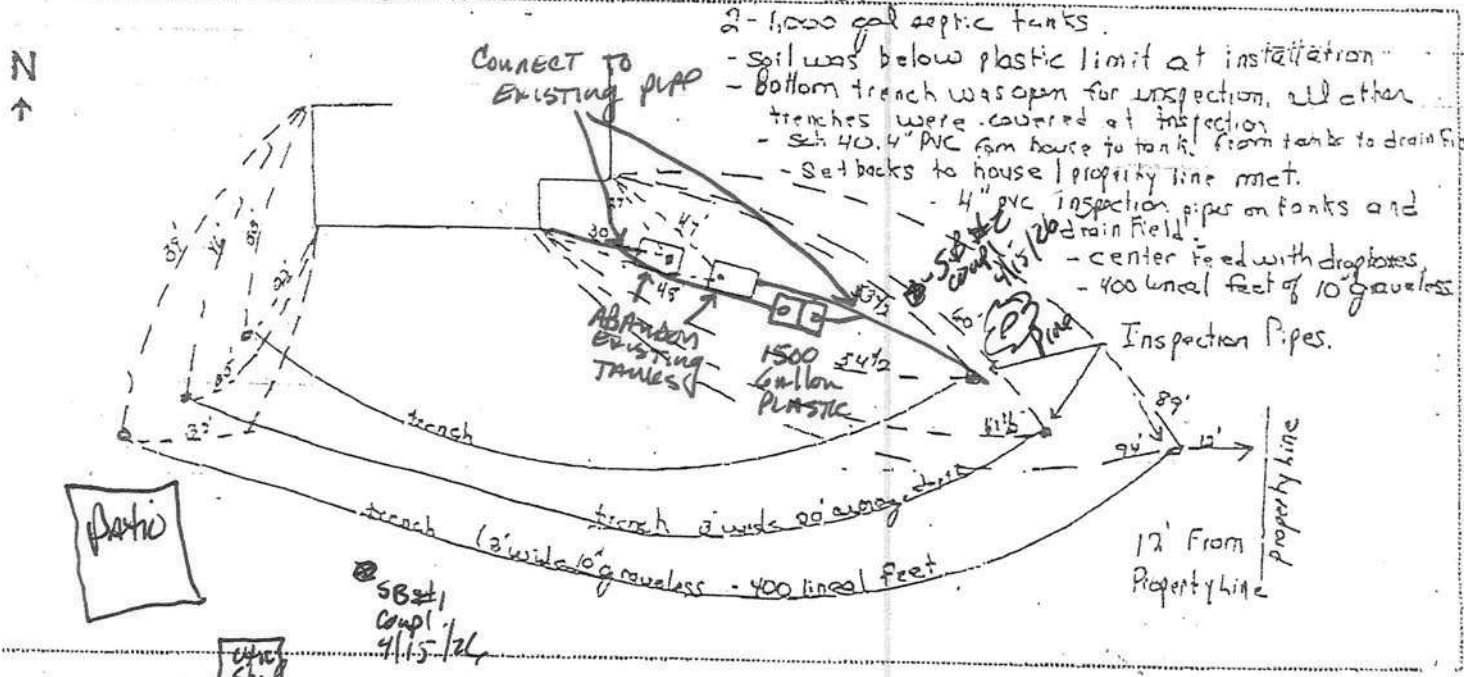 2 - 1,000 gal septic tanks.
- Soil was below plastic limit at installation
- Bottom trench was open for inspection, all other
trenches were covered at inspection
- Sch 40, 4" PVC from house to tank, from tanks to drain
- Setbacks to house / property line met.
- 4" pvc inspection pipes on tanks and
drain field.
- center feed with dropboxes,
- 400 lineal feet of 10" graveless
N
CONNECT TO
EXISTING
27'
47'
30
45
ABANDON
EXISTING
TANKS
1500
Gallon
PLASTIC
53 1/2
54 1/2
SB #2
compl
4/15/26
Pine
Inspection Pipes.
39'
22'
32'
51 1/2
89'
94'
12'
property line
12' From
Property Line
trench
trench 3' wide 20' average depth
trench (3' wide 10" graveless - 400 lineal feet
Patio
SB #1
compl
4/15/26